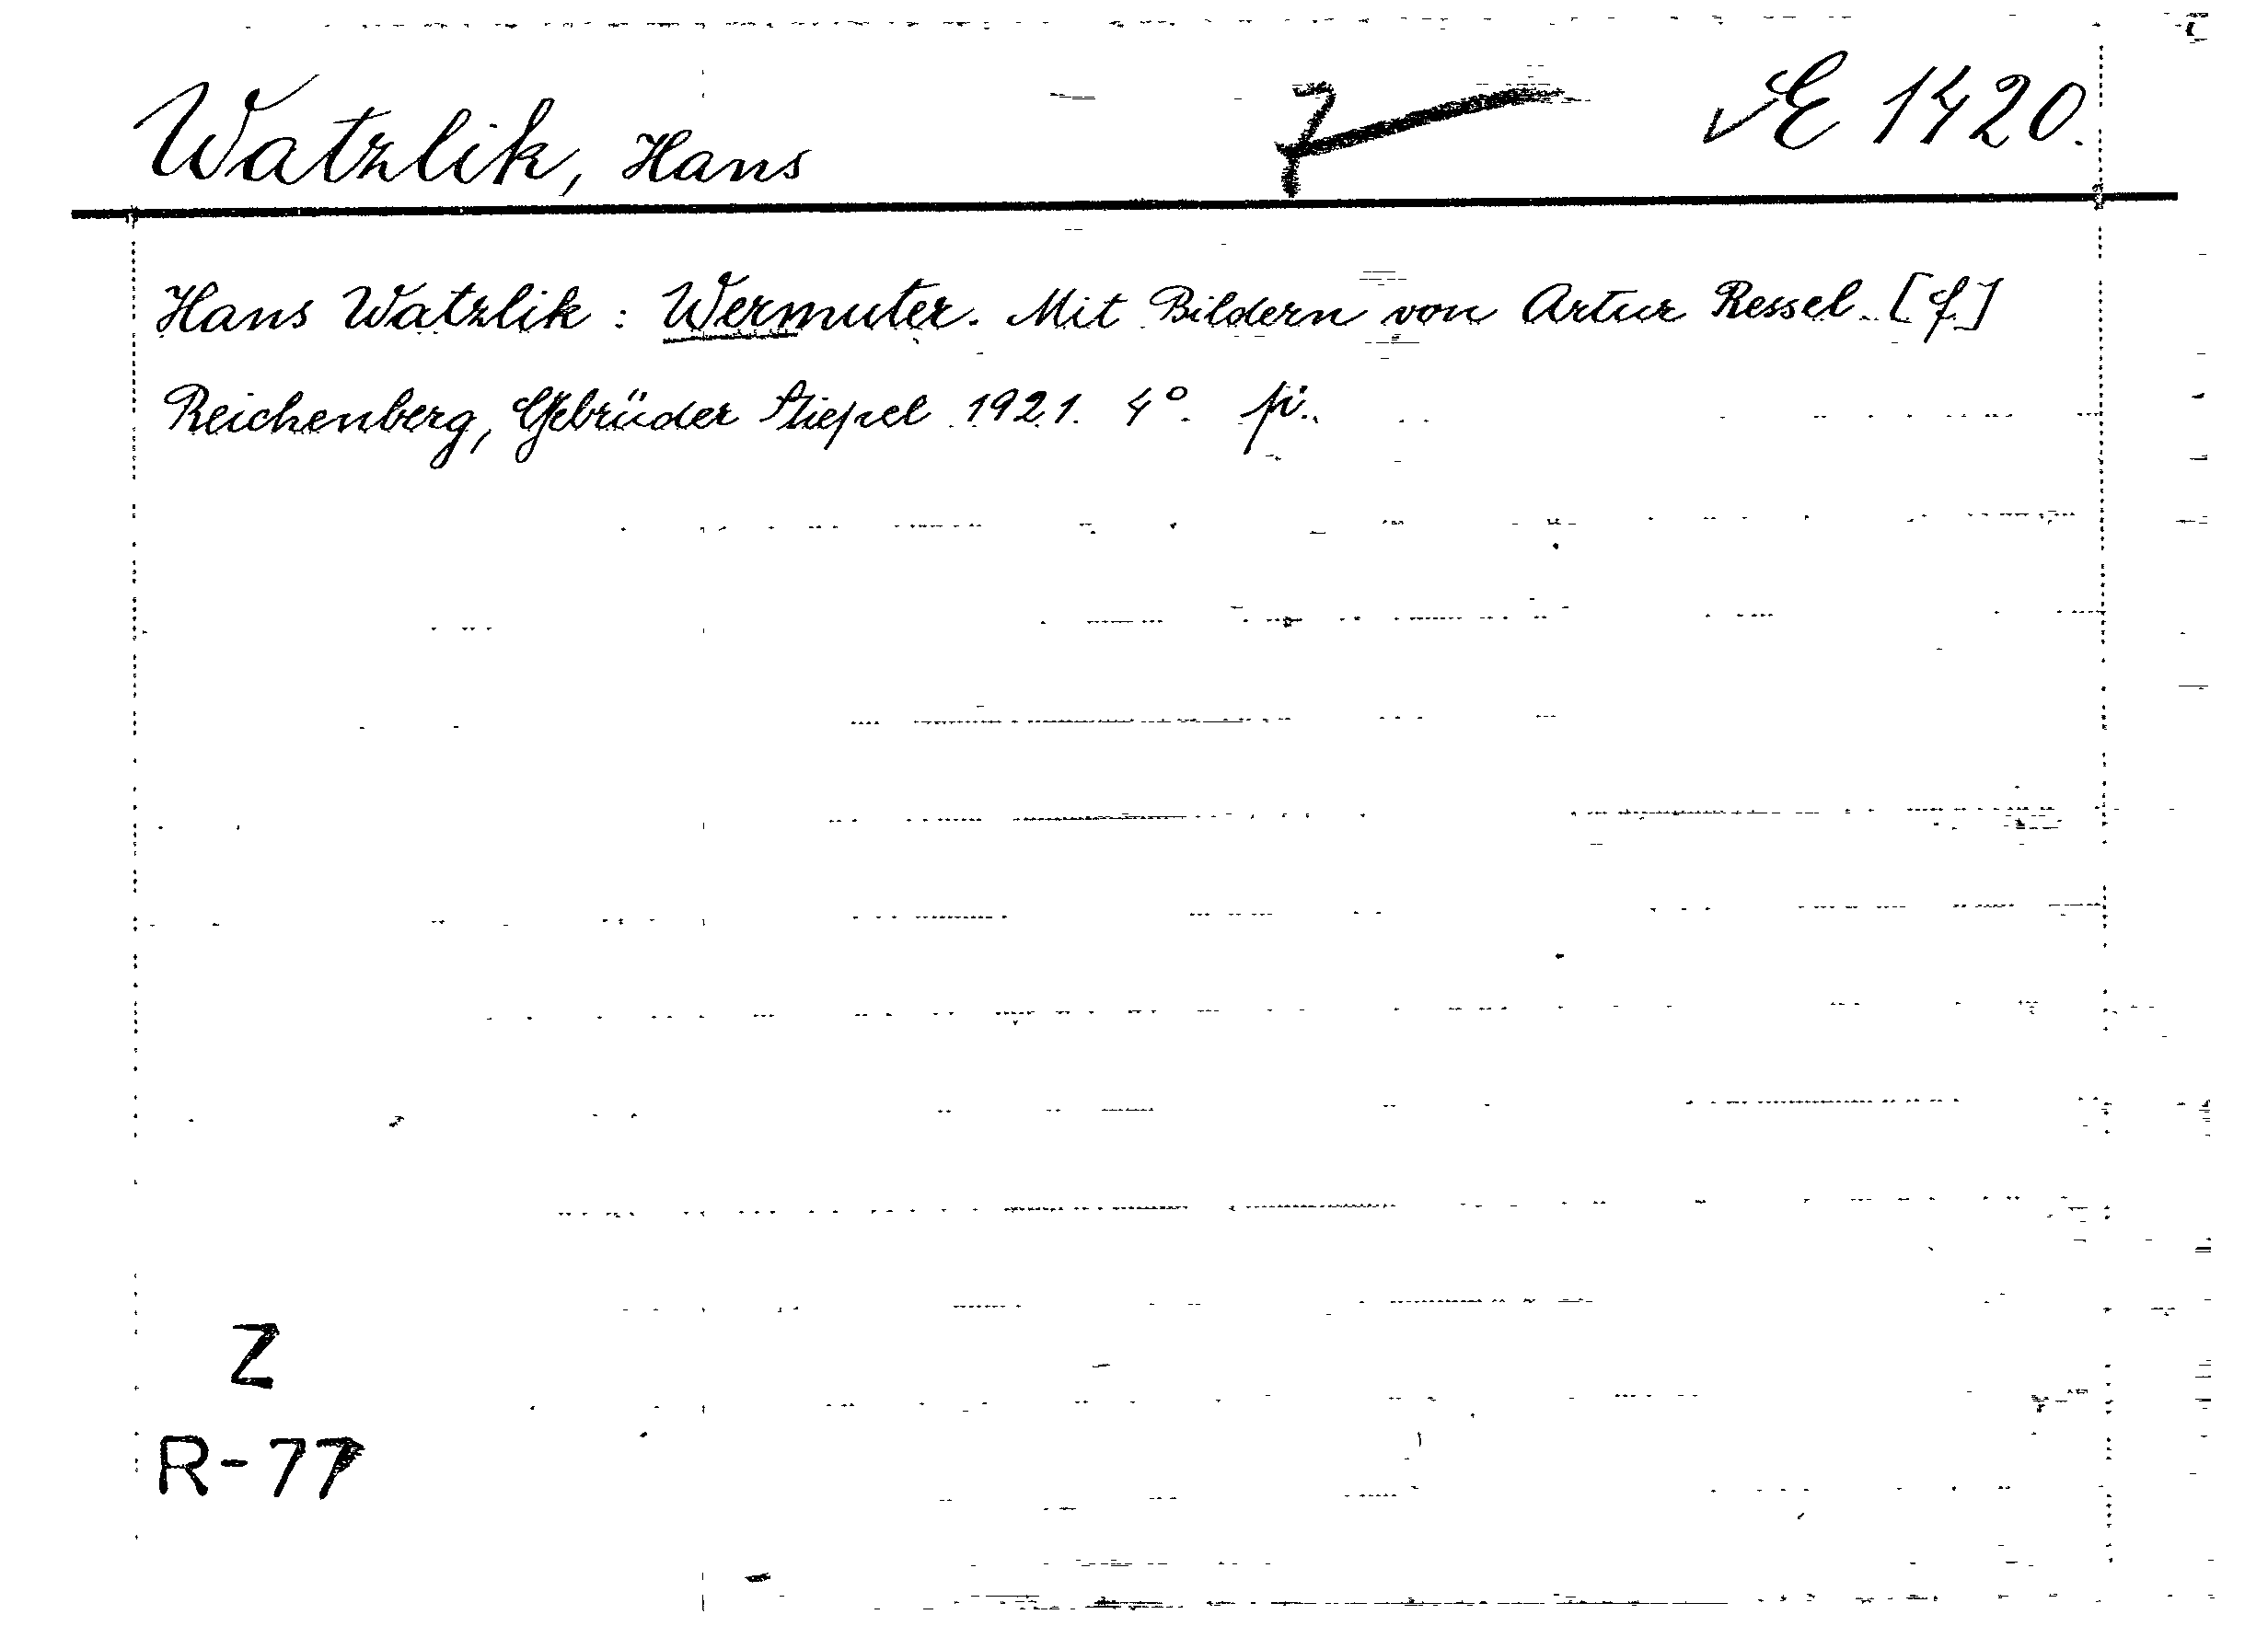 Watzlik, Hans 7 E 1420.
Hans Watzlik : Wermuter. Mit Bildern von Artur Ressel. [f.]
Reichenberg, Gebrüder Stiepel 1921. 4°.
Z
R-77